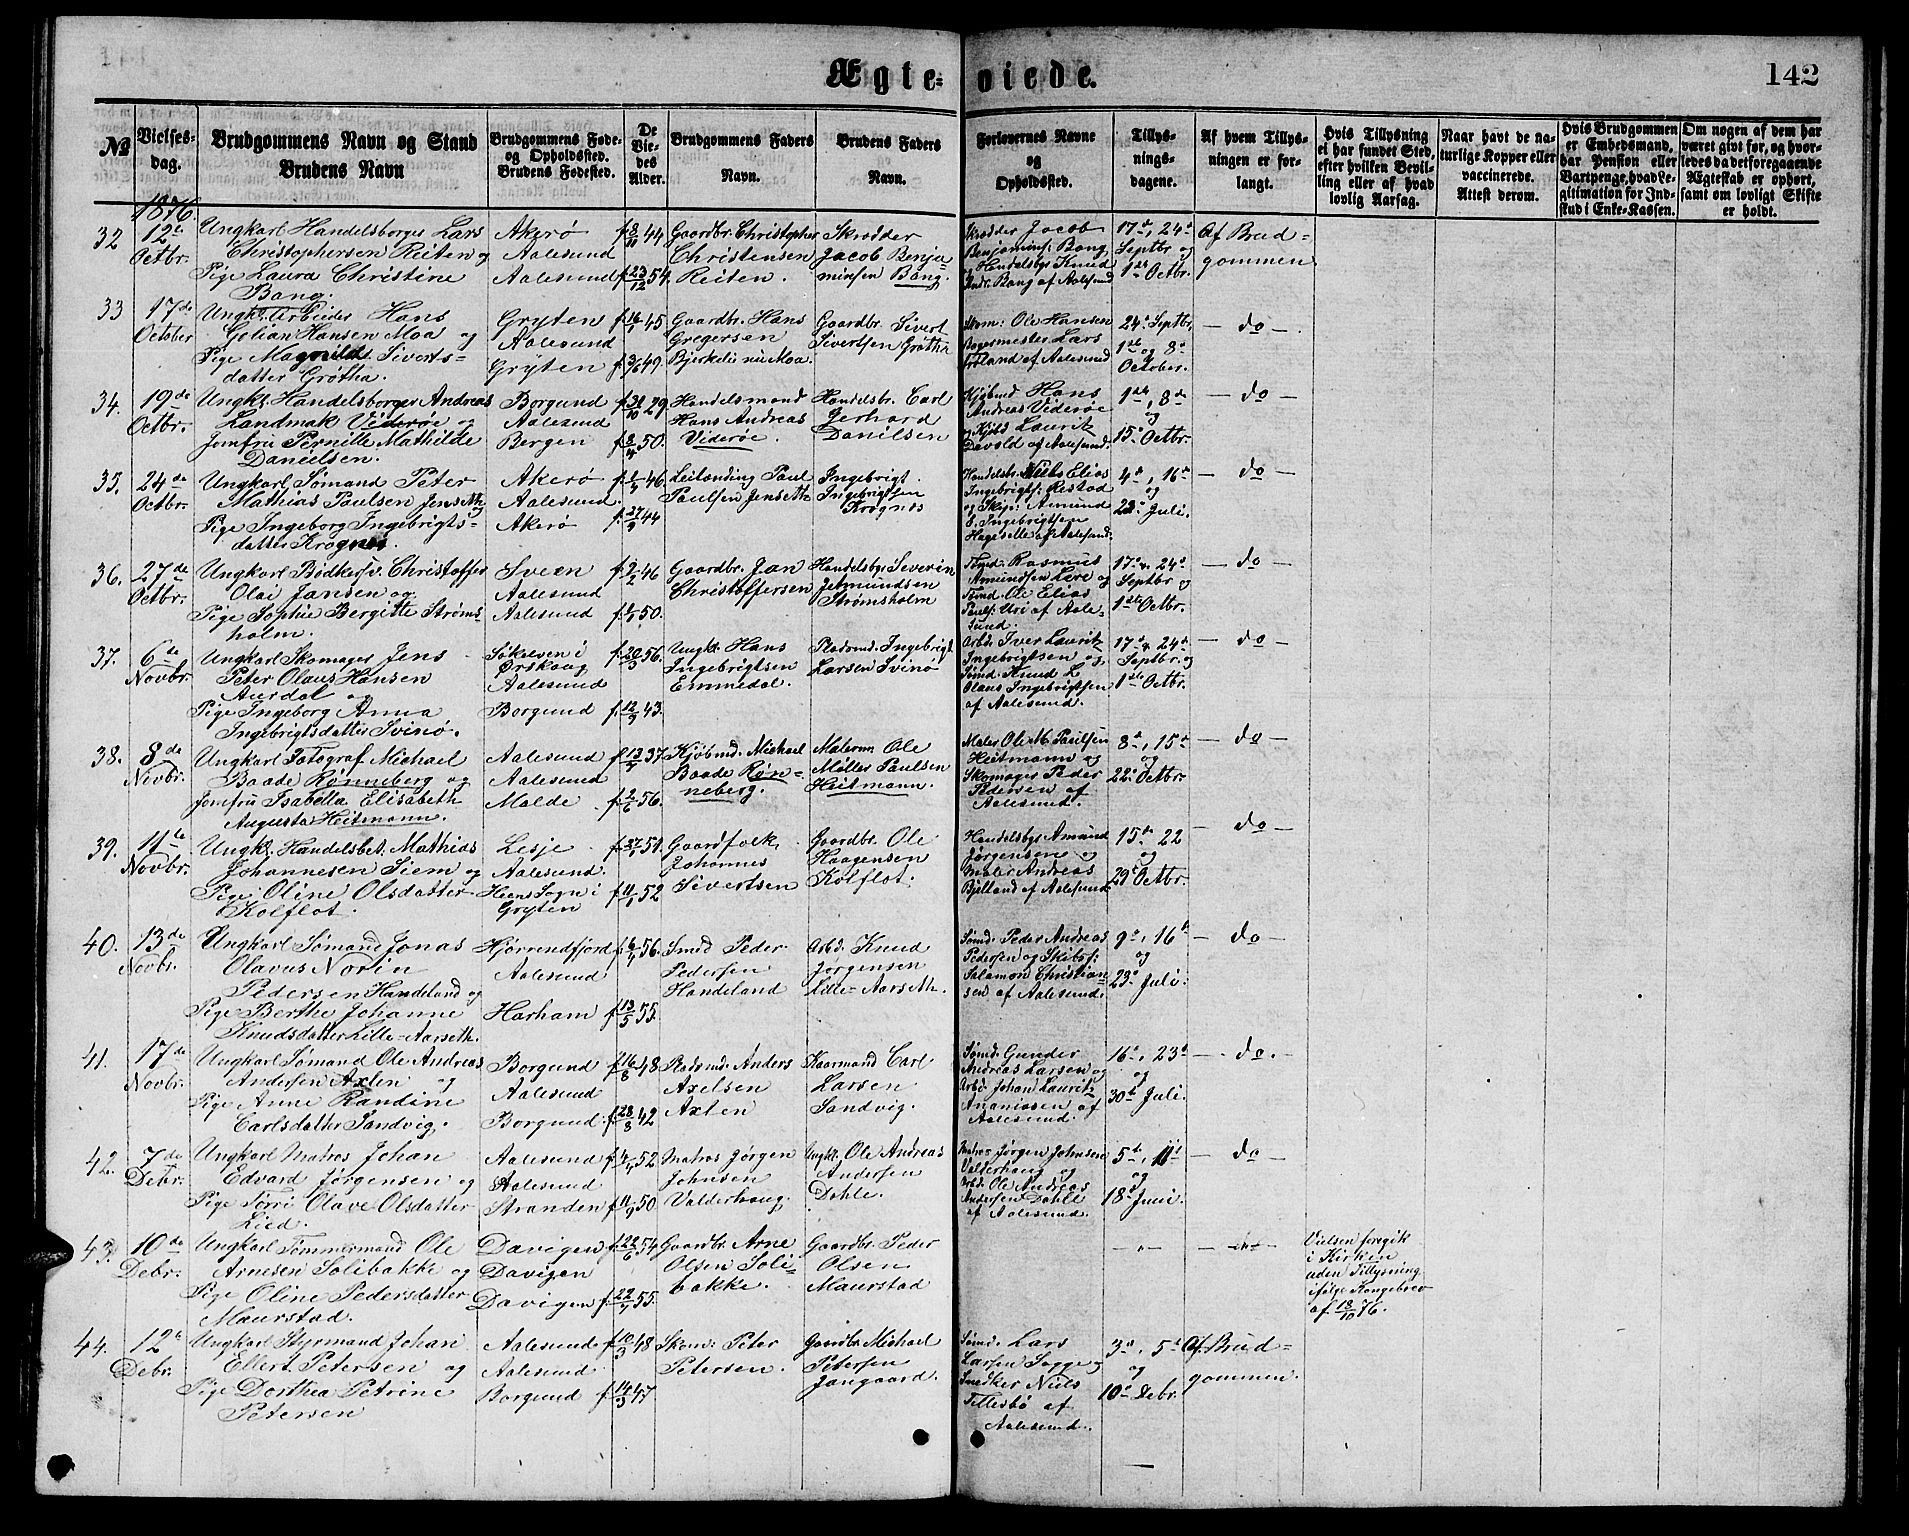 Ægte-
viede.
142
№
Vielses-
dag.
Brudgommens Navn og Stand
Brudens Navn
Brudgommens Føde-
og Opholdssted.
Brudens Fødested.
De
Vie-
des
Alder.
Brudgommens Faders
Navn.
Brudens Faders
Navn.
Forlovernes Navne
og
Opholdssted.
Tillys-
nings-
dagene.
Af hvem Tillys-
ningen er for-
langt.
Hvis Tillysning
ei har fundet Sted,
efter hvilken Bevil-
ling eller af hvad
lovlig Aarsag.
Naar havt de na-
turlige Kopper eller
vaccinerede.
Attest derom.
Hvis Brudgommen
er Embedsmand,
har Pension eller
Vartpenge, hvad Le-
gitimation for Ind-
skud i Enke-Kassen.
Om nogen af dem har
været givt før, og hvor-
ledes da det foregaaende
Ægteskab er ophørt,
samt om lovligt Skifte
er holdt.
1876.
32
12te
Octbr.
Ungkarl Handelsborger Lars
Christophersen Reiten og
Pige Laura Christine
Bang.
Akerø
Aalesund
Aalesund
f. 8/11 44
f. 23/12 54.
Gaardbr. Christopher
Christensen
Reiten.
Skrædder
Jacob Benja-
minsen Bang.
Skrædder Jacob
Benjamins: Bang
og Handelsbgr Knud
Andr. Bang af Aalesund
17de, 24de
Septbr og
1ste Octbr.
Af Brud-
gommen
33
17de
October
Ungk. Arbeider Hans
Golian Hansen Moa og
Pige Magnilds Siverts-
datter Grøtha.
Gryten
Aalesund
Gryten
f. 16/1 45
f. 3/6 49.
Gaardbr. Hans
Gregersen
Bjerkeli nu Moa.
Gaardbr. Sivert
Sivertsen Grøtha
Skom: Ole Hansen
Bagermester Lars
af Aalesund
24de Septbr,
1ste og 8de
October.
— do —.
34.
19de
Octbr.
Ungk. Handelsborger Andreas
Landmak Viderøe og
Jomfru Pernille Mathilde
Danielsen.
Borgund
Aalesund
Bergen
f. 31/10 29.
f. 8/4 50.
Handelsmand
Hans Andreas
Viderøe.
Handelsbr. Carl
Gerhard
Danilsen
Kjøbmd Hans
Andreas Viderøe
og Kjøbd Lauritz
Devold af Aalesund.
1ste, 8de
og
15de Octbr.
— do —
35.
24de
Octbr.
Ungkarl Sømand Peter
Mathias Paulsen Jenseth og
Pige Ingeborg Ingebrigts-
datter Krognes.
Akerø
Aalesund
Akerø
f. 1/7 46
f. 27/9 44
Leilænding Paul
Paulsen Jenseth
Ingebrigt
Ingebrigtsen
Krognes
Handelsbr. Niels Elias
Ingebrigts: Restad
og Skip: Amund
S. Ingebrigtsen
Hageselle af Aalesund.
4de, 16de
og
23de Juli.
— do —
36.
27de
Octbr.
Ungkarl Bødkersv. Christoffer
Olai Jansen og
Pige Sophie Bergitte Strøms-
holm.
Sveen
Aalesund
Aalesund
f. 2/2 46
f. 1/1 50.
Gaardbr. Jan
Christoffersen
Handelsbgr Severin
Jetmundsen
Strømsholm
Rasmus
Amundsen Lere og
Ole Elias
Pauls: Uri af Aale-
sund.
17de, 24de
Septbr og
1ste Octbr.
— do —
37.
6te
Novbr.
Ungkarl Skomager Jens
Peter Olaus Hansen
Aurdal og
Pige Ingeborg Anna
Ingebrigtsdatter Svinø.
Søkelven i
Ørskoug
Aalesund
Borgund
f. 20/3 56.
f. 12/9 43.
Ungk. Hans
Ingebrigtsen
Emmedal.
Pladsmd. Ingebrigt
Larsen Svinø
Arbd. Iver Lauritz
Ingebrigtsen og
Sømd. Knud L
Olaus Ingebrigtsen
af Aalesund.
17de, 24de
Septbr. og
1ste Octbr.
— do —
38.
8de
Novbr.
Ungkarl Fotograf Michael
Baade Rønneberg og
Jomfru Isabella Elisabeth
Augusta Heitmann.
Aalesund
Aalesund
Molde
f. 13/7 37
f. 2/6 56.
Kjøbmd. Michael
Baade Røn-
neberg.
Malerm Ole
Møller Paulsen
Heitmann.
Maler Ole M. Paulsen
Heitmann og
Skomager Peder
Pedersen af
Aalesund.
8de, 15de
og
22de Octbr.
— do —
39.
11te
Novbr.
Ungk. Handelsbet. Mathias
Johannesen Siem og
Pige Oline Olsdatter
Kolflot.
Lesje
Aalesund.
Heens Sogn i
Gryten
f. 27/1 51.
f. 11/1 52
Gaardfolk
Johannes
Sivertsen
Gaardbr. Ole
Haagensen
Kolflot.
Handelsbgr Amund
Jørgensen og
Maler Andreas
Bjelland af Aalesund
15de 22
og
29de Octbr.
— do —
40.
13de
Novbr.
Ungkarl Sømand Jonas
Olavus Norin
Pedersen Handeland og
Pige Berthe Johanne
Knudsdatter Lille-Aarseth.
Hjørrendfjord
Aalesund
Harham
f. 6/7 56.
f. 13/5 55.
Smed Peder
Pedersen
Handeland
Arbd. Knud
Jørgensen
Lille-Aarseth.
Sømd. Peder Andreas
Pedersen og Skibsf:
Salamon Christian-
sen af Aalesund.
9de, 16de
og
23de Juli.
— do —
41.
17de
Novbr.
Ungkarl Sømand Ole Andreas
Andersen Axlen og
Pige Anne Randine
Carlsdatter Sandvig.
Borgund
Aalesund
Borgund.
f. 16/8 48
f. 28/8 42
Pladsmd. Anders
Axelsen
Axlen
Kaarmand Carl
Larsen
Sandvig.
Sømd. Gunder
Andreas Larsen og
Arbd. Johan Lauritz
Ananiassen af
Aalesund.
16de, 23de
og
30te Juli.
— do. —
42.
7de
Debr.
Ungkarl Matros Johan
Edvard Jørgensen og
Pige Tørre Olave Olsdatter
Lied.
Aalesund
Aalesund
Stranden
f. 4/4 52
f. 11/9 50.
Matros Jørgen
Johnsen
Valderhaug.
Ungk. Ole Andreas
Andersen
Dahle.
Matros Jørgen Johnsen
Valderhaug og
Arbd. Ole Andreas
Andersen Dahle
af Aalesund.
5te, 11te
og
18de Juni.
— do —
43.
10de
Debr.
Ungkarl Tømmermand Ole
Arnesen Solibakke og
Pige Oline Pedersdatter
Maurstad.
Davigen
Davigen
Davigen
f. 22/6 54
f. 22/7 55.
Gaardbr. Arne
Olsen Soli-
bakke.
Gaardbr. Peder
Olsen
Maurstad
— „ —
Vielsen foregik
i Kirken
uden Tillysning
ifølge Kongebrev
af 18/10 76.
44.
12te
Debr.
Ungkarl Styrmand Johan
Ellert Petersen og
Pige Dorthea Petrine
Petersen
Aalesund
Aalesund
Borgund
f. 10/3 48
f. 14/3 47
Skom: Peter
Petersen.
Gaardbr. Michael
Petersen
Jangaard.
Sømd. Lars
Larsen Sogge og
Snedker Niels
Tellesbø af
Aalesund.
3de, 5te
og
10de Debr.
Af Brud-
gommen.